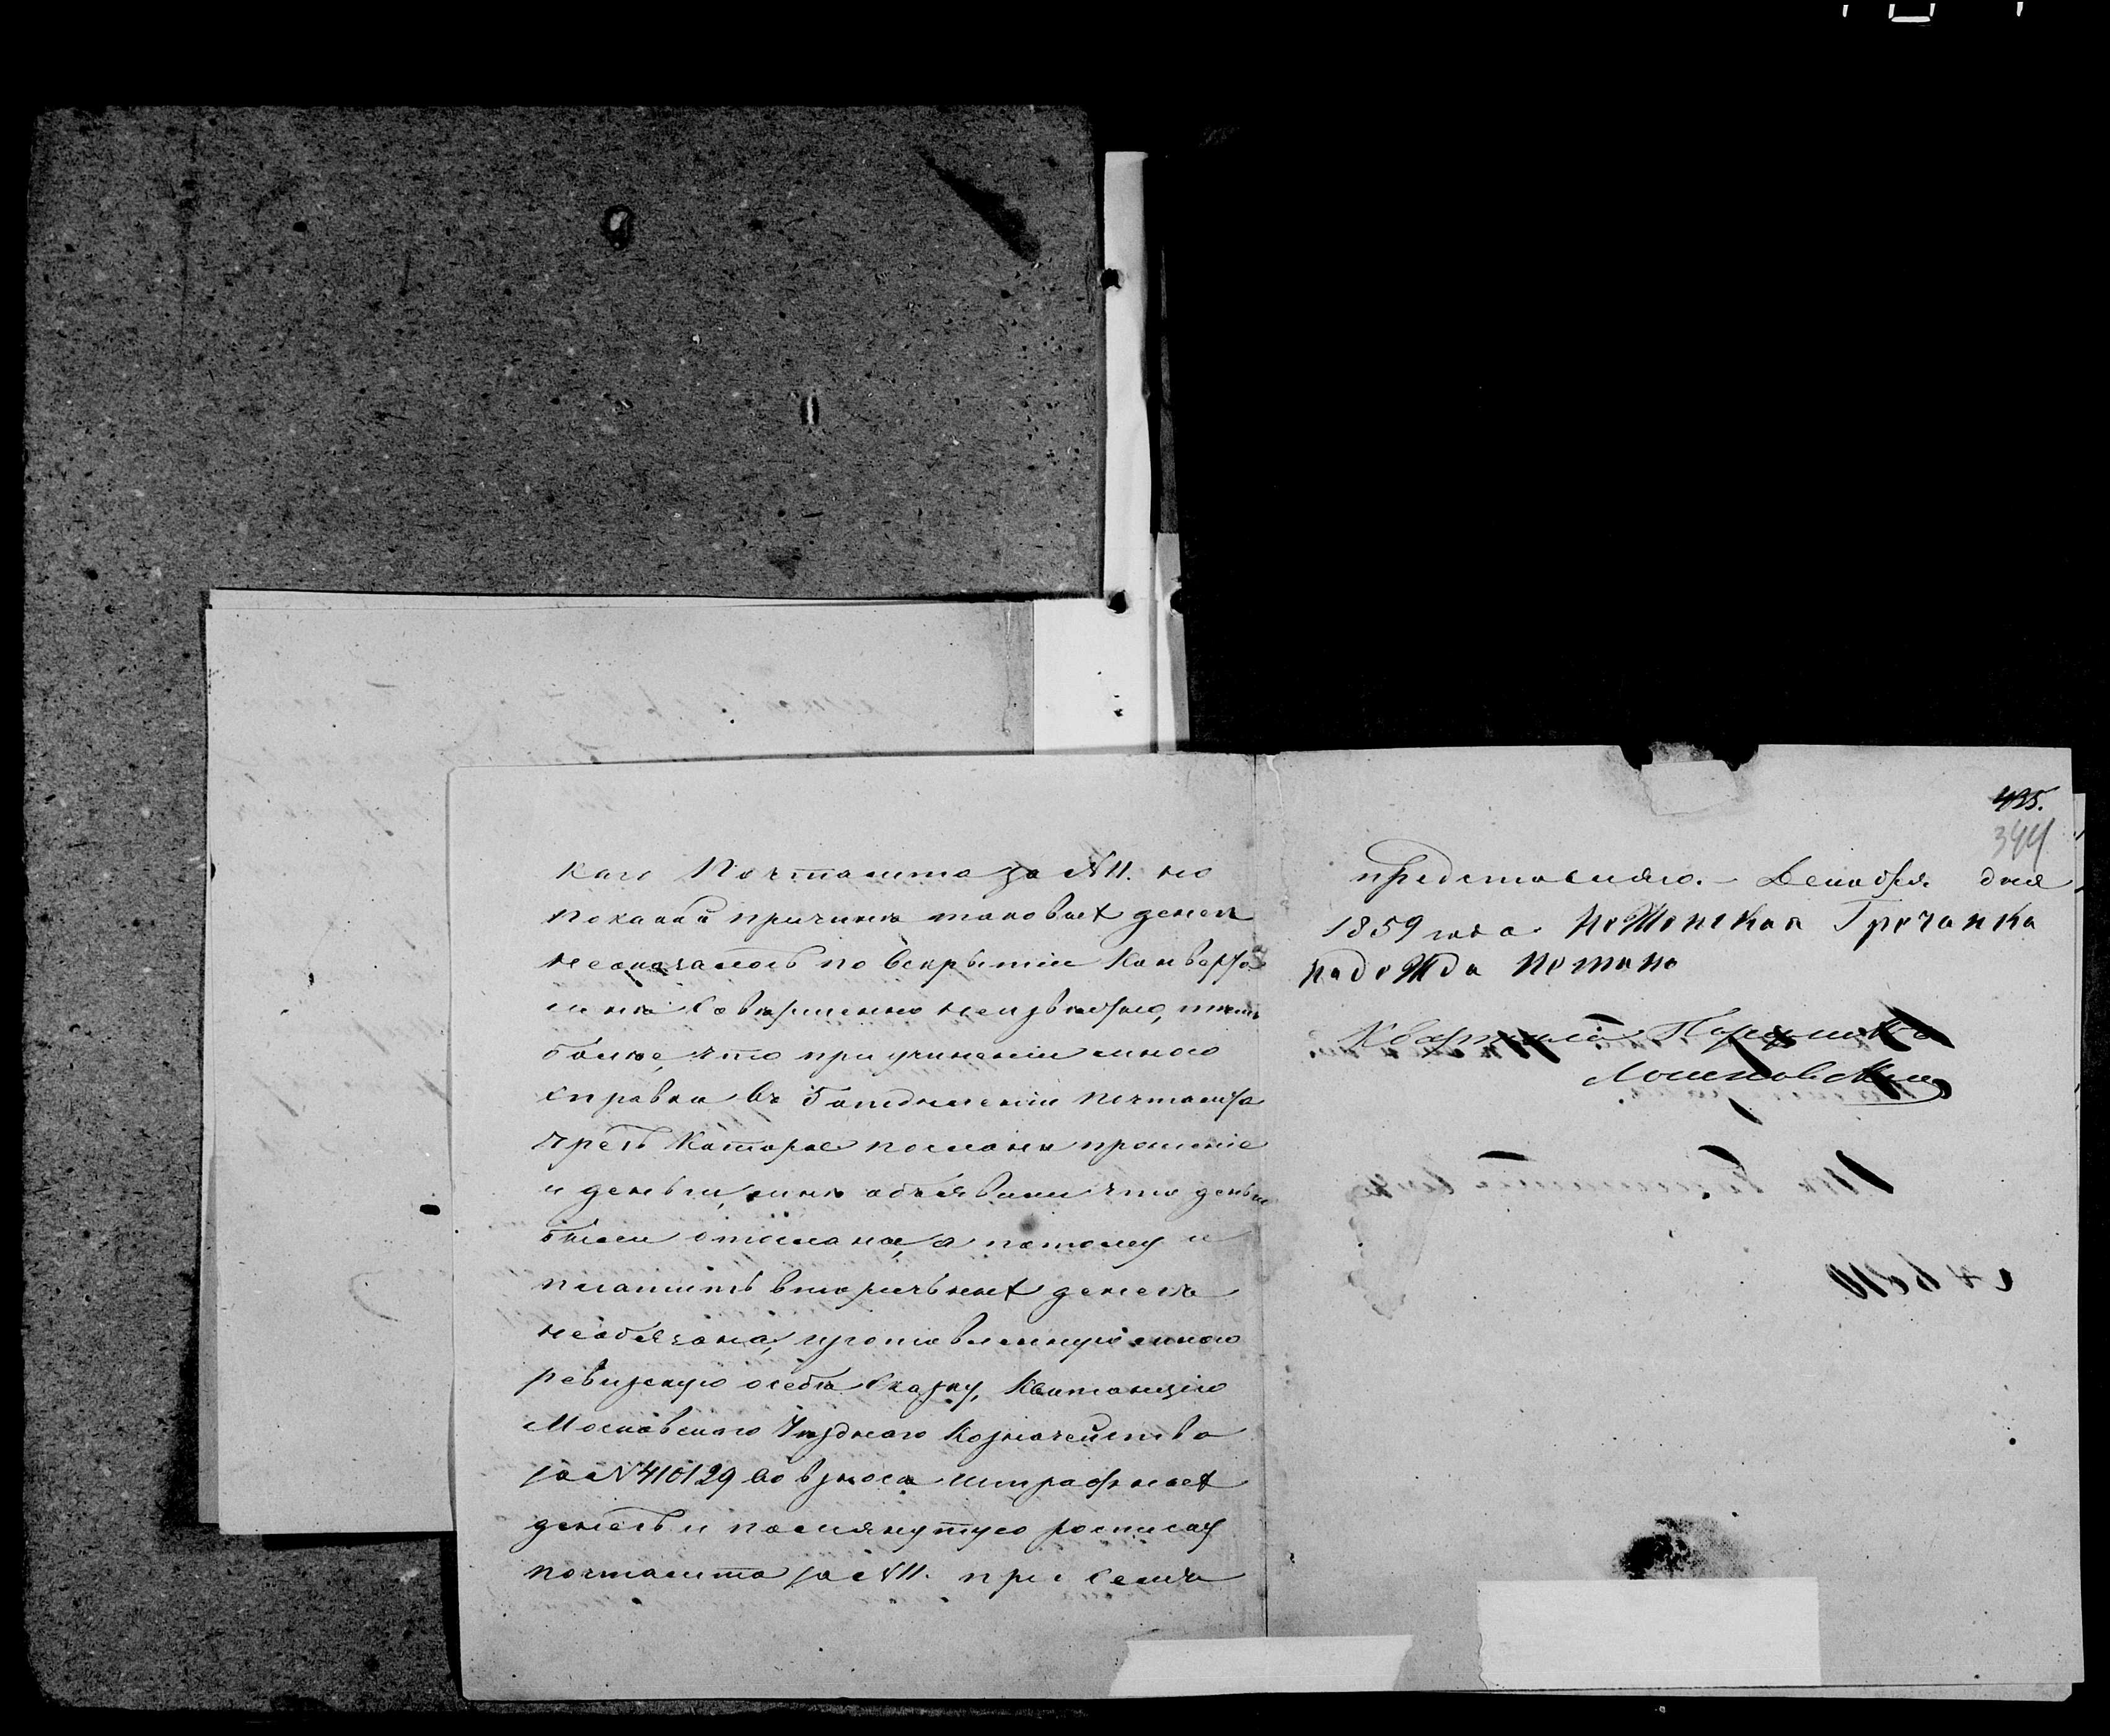 каго Почтамта за №11. но
по какой причине таковых денег
неоказалось по вскрытии Конверта
мне Совершенно неизвестно, тем
более, что при учинении мною
справки в Отделении почтамта
чрез Которое посланы прошение
и деньги, мне объявили что деньги
были отосланы, а потому и
платить вторичных денег
необязана, изготовленную мною
ревизскую о себе Сказку, Квитанцию
Московского Уездного Казначейства
за №410129 во взносе штрафных
денег и помянутую росписку
почтамта за №11. при Семъ
435.
344
представляю. - Декабря дня
1859 года Неженская Гречанка
надежда